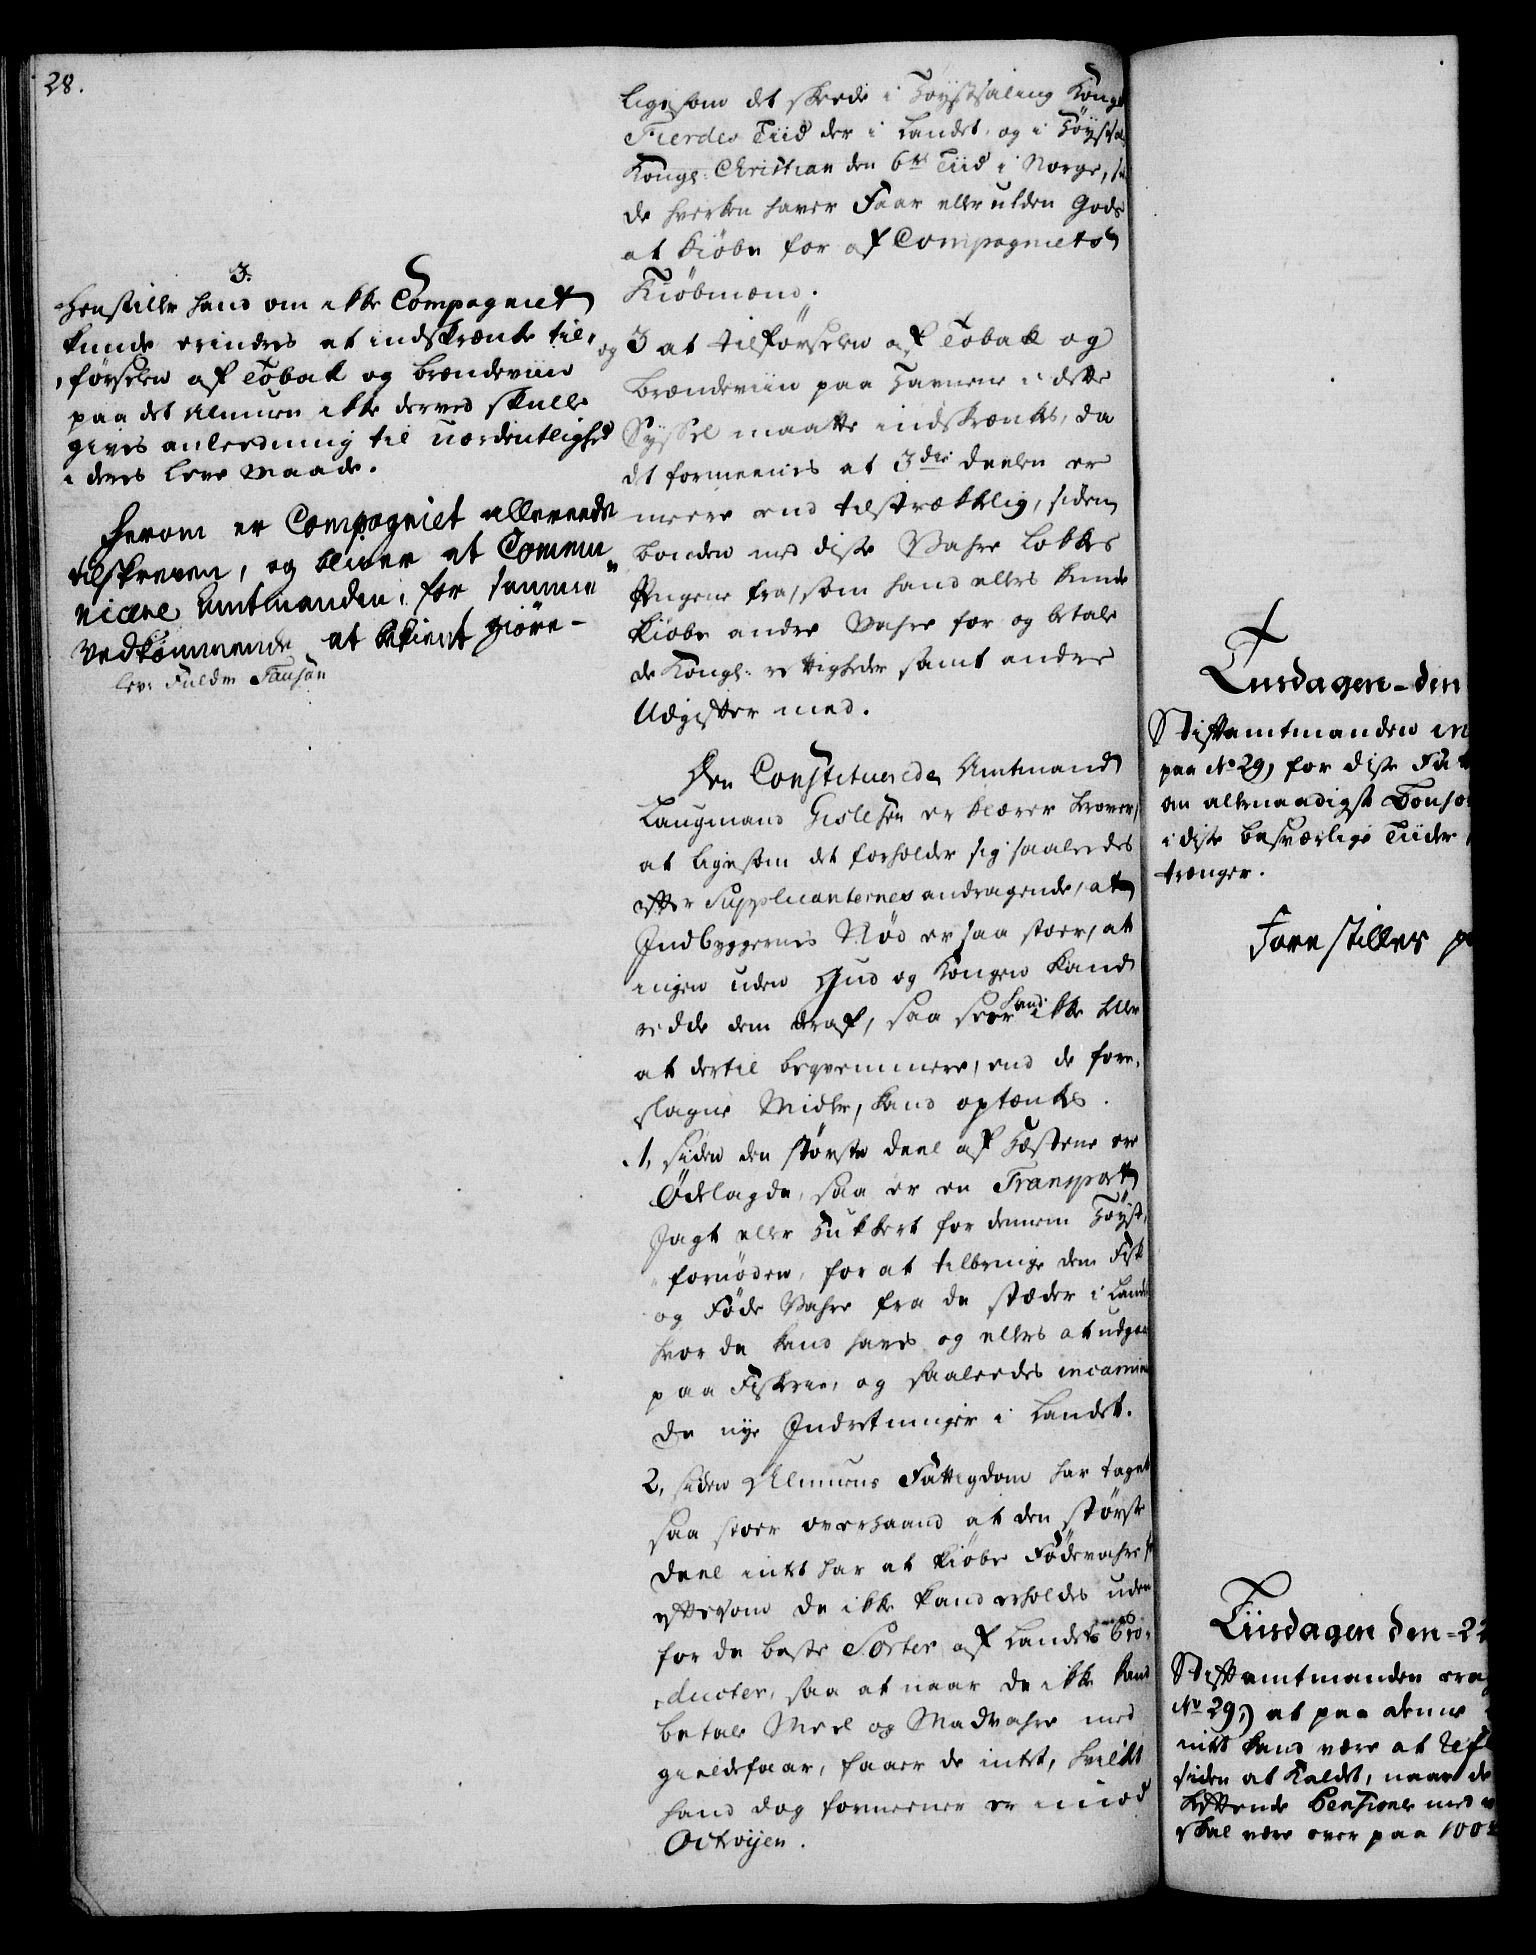 28.
3.
Henstiller hand om ikke Compagniet
kunde erindres at indskrænke til,
,førselen af Tobak og Brændeviin
paa det Almuen ikke derved skulle
gives anleedning til uordentlighed
i deres leve Maade.
Herom er Compagniet allereede
tilskreven, og bliver at Commu
nicere Amtmanden, for samme
Vedkommende at bekient giøre-
ligesom det skeede i Høystsalig Kong
Fierdes Tiid der i Landet, og i Høystsal
Kongl: Christian den 6te Tiid i Norge,
de hverken haver Faar eller ulden Gods
at kiøbe for af Compagniets
Kiøbmænd.
og 3 at tilførselen af Tobak og
Brændeviin paa Havnene i dette
Syssel maatte indskrænkes, da
det formeenes at 3die deelen er
meere end tilstrækkelig, siden
bonden med disse Vahre lokkes
Pengene fra, som hand ellers kunde
kiøbe andre Vahre for og betale
de Kongl: rettigheder samt andre
Udgifter med.
Den Constituerede Amtmand
Laugmand Gislesen erklærer herover,
at ligesom det forholder sig saaledes
efter Supplicanternes andragende, at
Indbyggernes Nød er saa stoer, at
ingen uden Gud og Kongen kand
redde dem draf, saa seer hand ikke heller
at dertil beqvemmere, end de fore,
slagne Midler, kand optænkes.
1, siden den største deel af Hestene ere
Ødelagde, saa er en Transport
Jagt eller Hukkert for dennem Høyst,
fornøden, for at tilbringe dem Fisk
og Føde Vahre fra de stæder i Landet
hvor de kand haves og ellers at udgaa
paa Fiskerie, og saaleedes
de nye Indretninger i Landet.
2, siden Almuens Fattigdom har taget
saa stoer overhaand at den største
deel intet har at kiøbe Fødevahre for
eftersom de ikke kand erholdes uden
for de beste Sorter af Landets Pro,
,ducter, saa at naar de ikke kand
betale Meel og Madvahre med
gieldefaar, faaer de intet, hvilket
hand dog formeener er imod
Octroijen.
Tiisdagen-den
Stiftamtmanden
paa No 29, for disse
om allernaadigst
i disse besværlige Tiider
trænger.
Forestilles
Tiisdagen den-22
Stiftamtmanden
No 29,) at paa denne
intet kand være at
siden at Kaldet, naar de
Pensioner med
skal være over paa 100